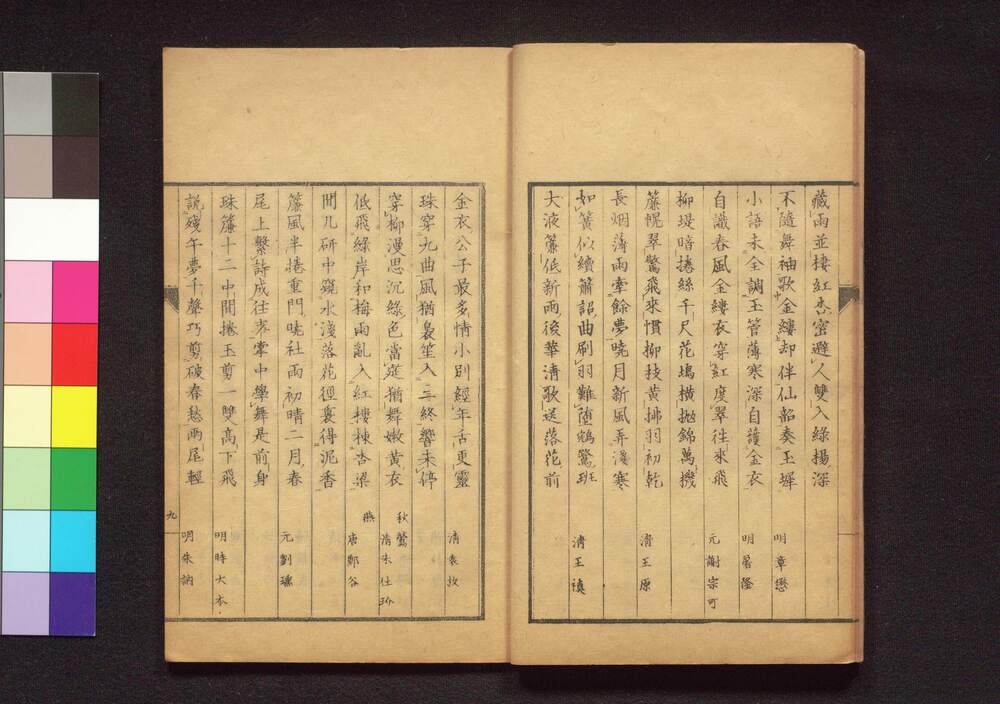 藏雨並棲紅杏密避人雙入綠楊深
不隨舞袖歌金縷却伴仙韶奏玉墀 明章懋
小語未全調玉管薄寒深自護金衣 明屠隆
自識春風金縷衣穿紅度翠往來飛 元謝宗可
柳堤暗捲絲千尺花塢橫拋錦萬機
簾幌翠驚飛來慣柳枝黃拂羽初乾 清王原
長烟薄雨牽餘夢曉月新風弄淺寒
如簧似續簫韶曲刷羽難隨鵷鷺班 清王
大液簾低新雨後華清歌送落花前
金衣公子最多情小別經年舌更靈 清袁枚
珠穿九曲風猶裊笙入三終響未停
穿柳漫思沉綠色當筵猶舞嫩黃衣 秋鶯 清朱仕玠
低飛綠岸和梅雨亂入紅樓棟杏梁 燕 唐鄭谷
閒几研中窺水淺落花徑裏得泥香
簾風半捲重門曉社雨初晴二月春 元劉
尾上繫詩成往客掌中學舞是前身
珠簾十二中間捲玉剪一雙高下飛 明時大本
說殘午夢千聲巧剪破春愁兩尾輕 明朱訥
九